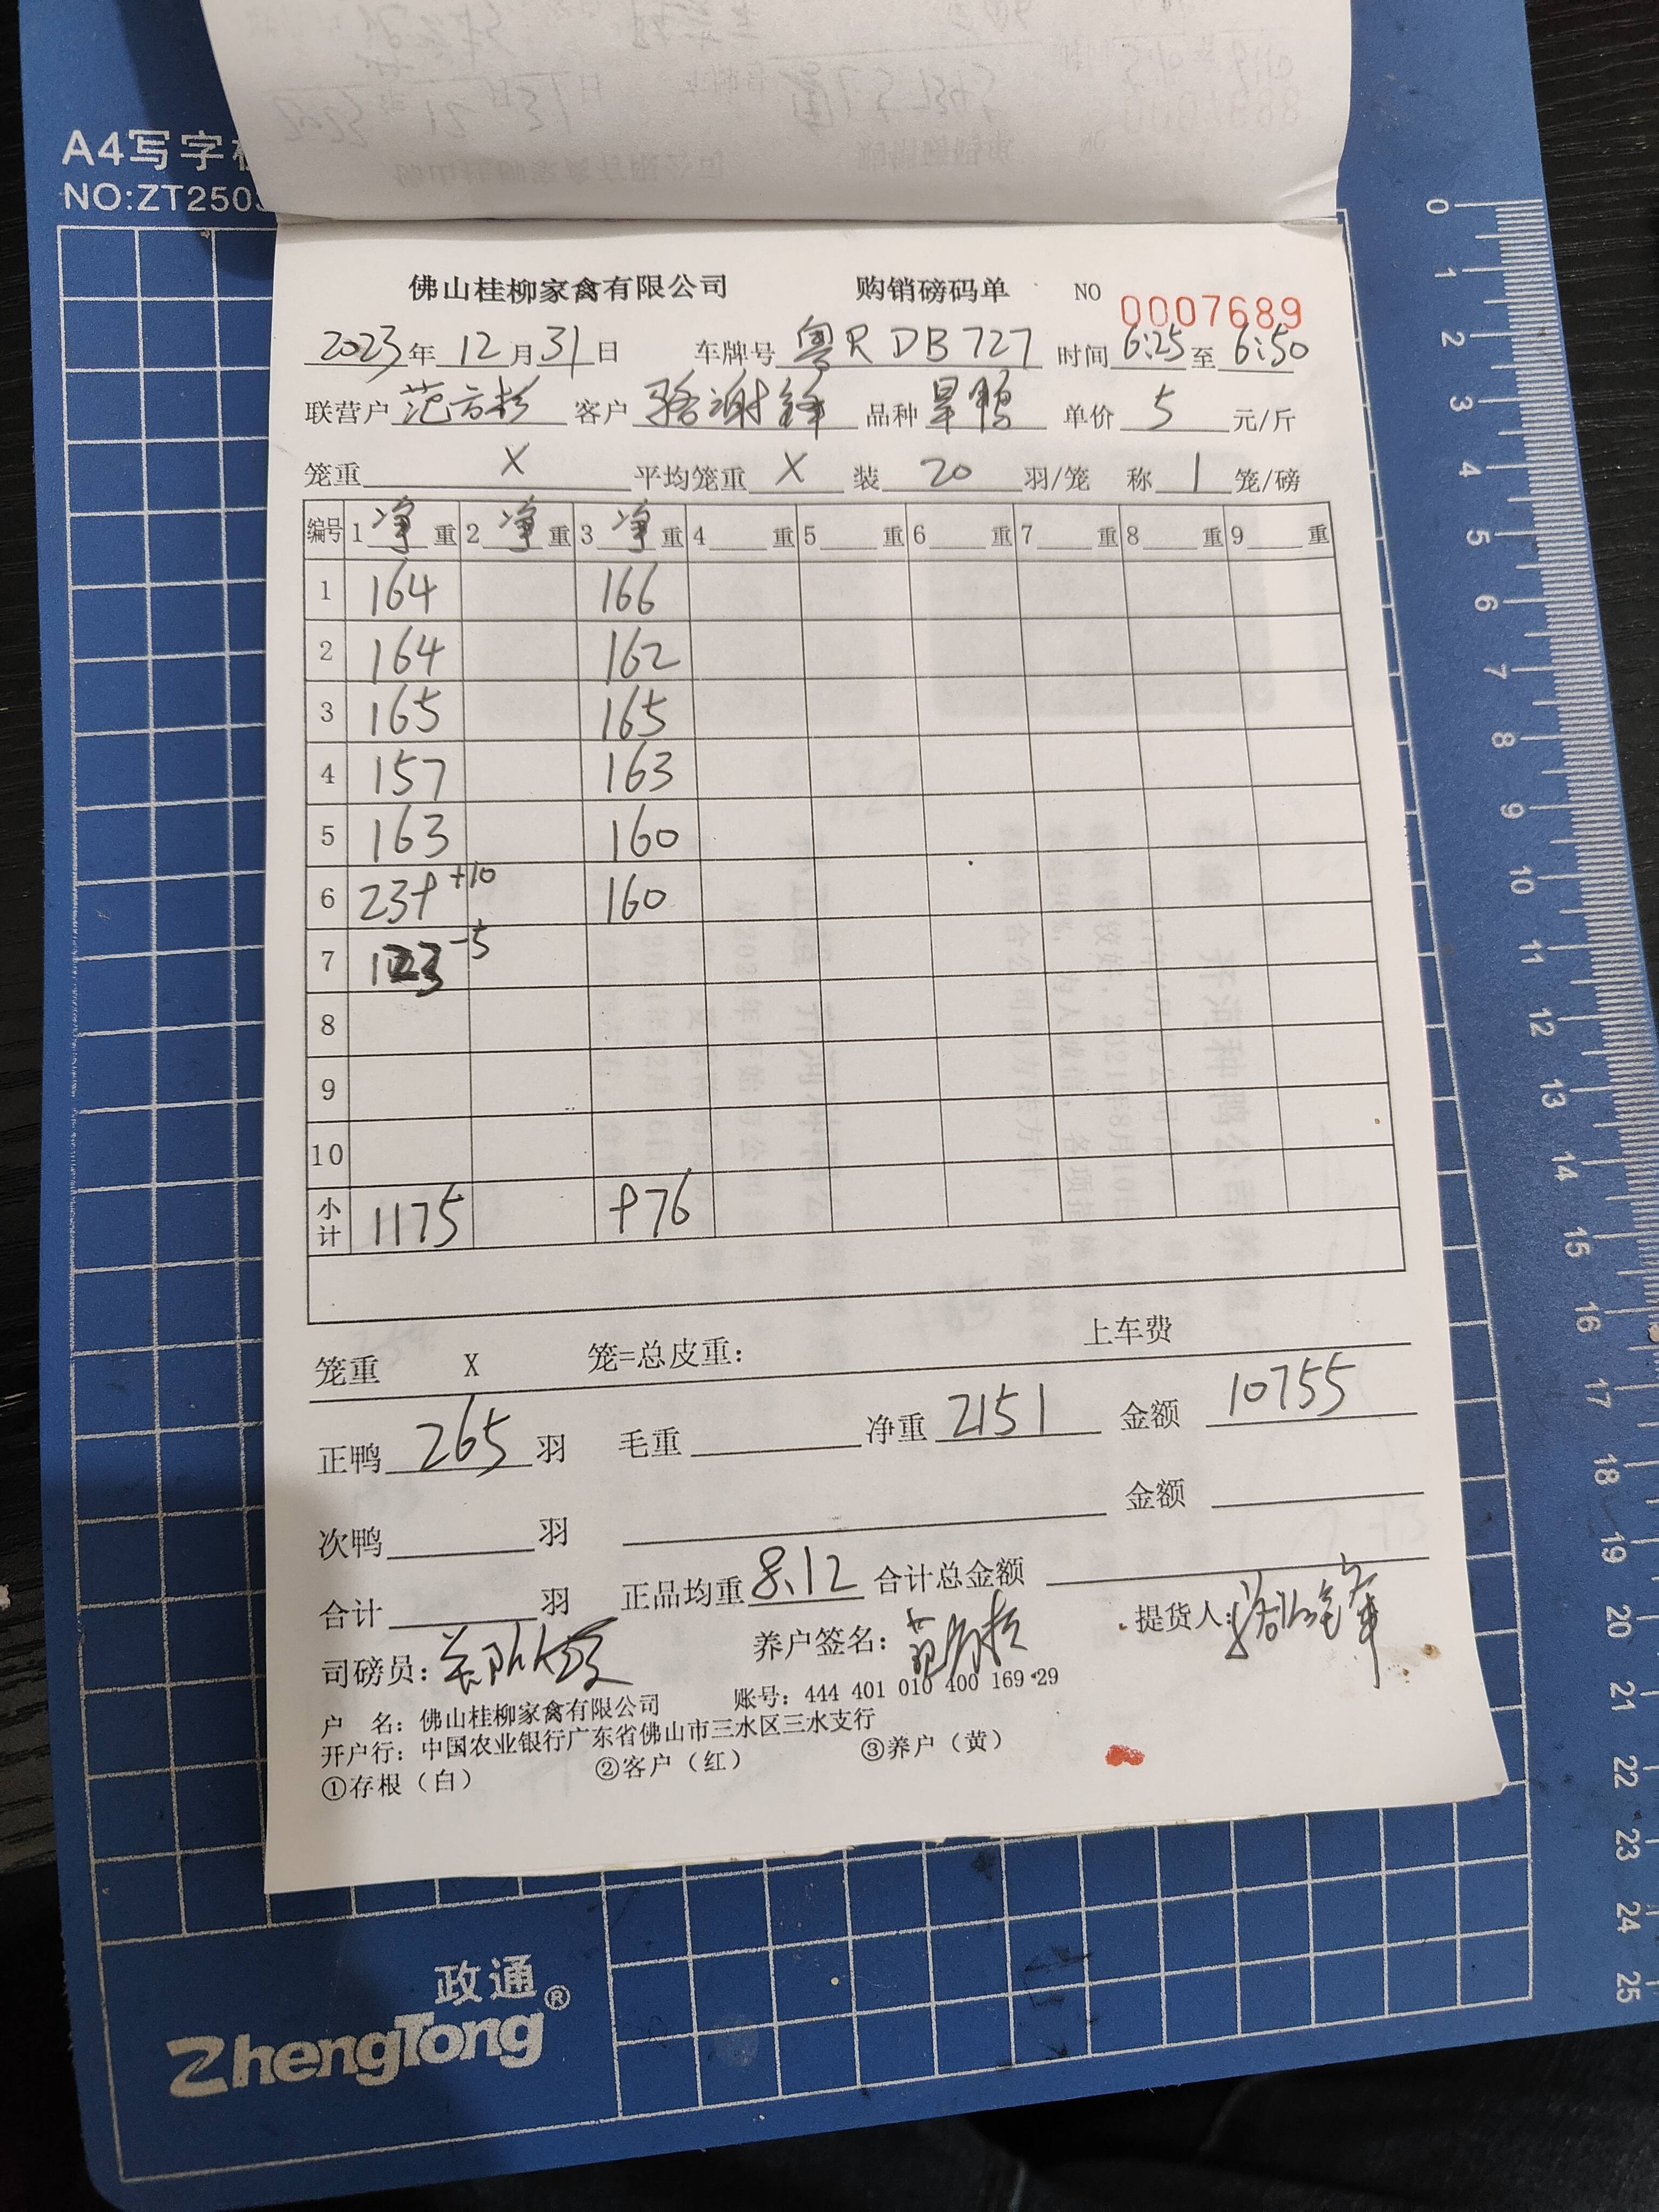 A4写字
NO:ZT250
佛山桂柳家禽有限公司 购销磅码单 NO 0007689
2023年12月31日 车牌号 粤R DB727 时间 6:25 至 6:50
联营户 范方彬 客户 骆谢锋 品种 旱鸭 单价 5 元/斤
笼重 X 平均笼重 X 装 20 羽/笼 称 1 笼/磅
编号 1 净 重 2 净 重 3 净 重 4 重 5 重 6 重 7 重 8 重 9 重
1 164 166
2 164 162
3 165 165
4 157 163
5 163 160
6 239 +10 160
7 123 -5
8
9
10
小计 1175 976
笼重 X 笼=总皮重: 上车费
正鸭 265 羽 毛重 净重 2151 金额 10755
次鸭 羽 金额
合计 羽 正品均重 8.12 合计总金额
司磅员: 养户签名: 提货人:
户 名: 佛山桂柳家禽有限公司 账号: 444 401 010 400 169 29
开户行: 中国农业银行广东省佛山市三水区三水支行
①存根（白） ②客户（红） ③养户（黄）
0
1
2
3
4
5
6
7
8
9
10
11
12
13
14
15
16
17
18
19
20
21
22
23
24
25
政通®
ZhengTong